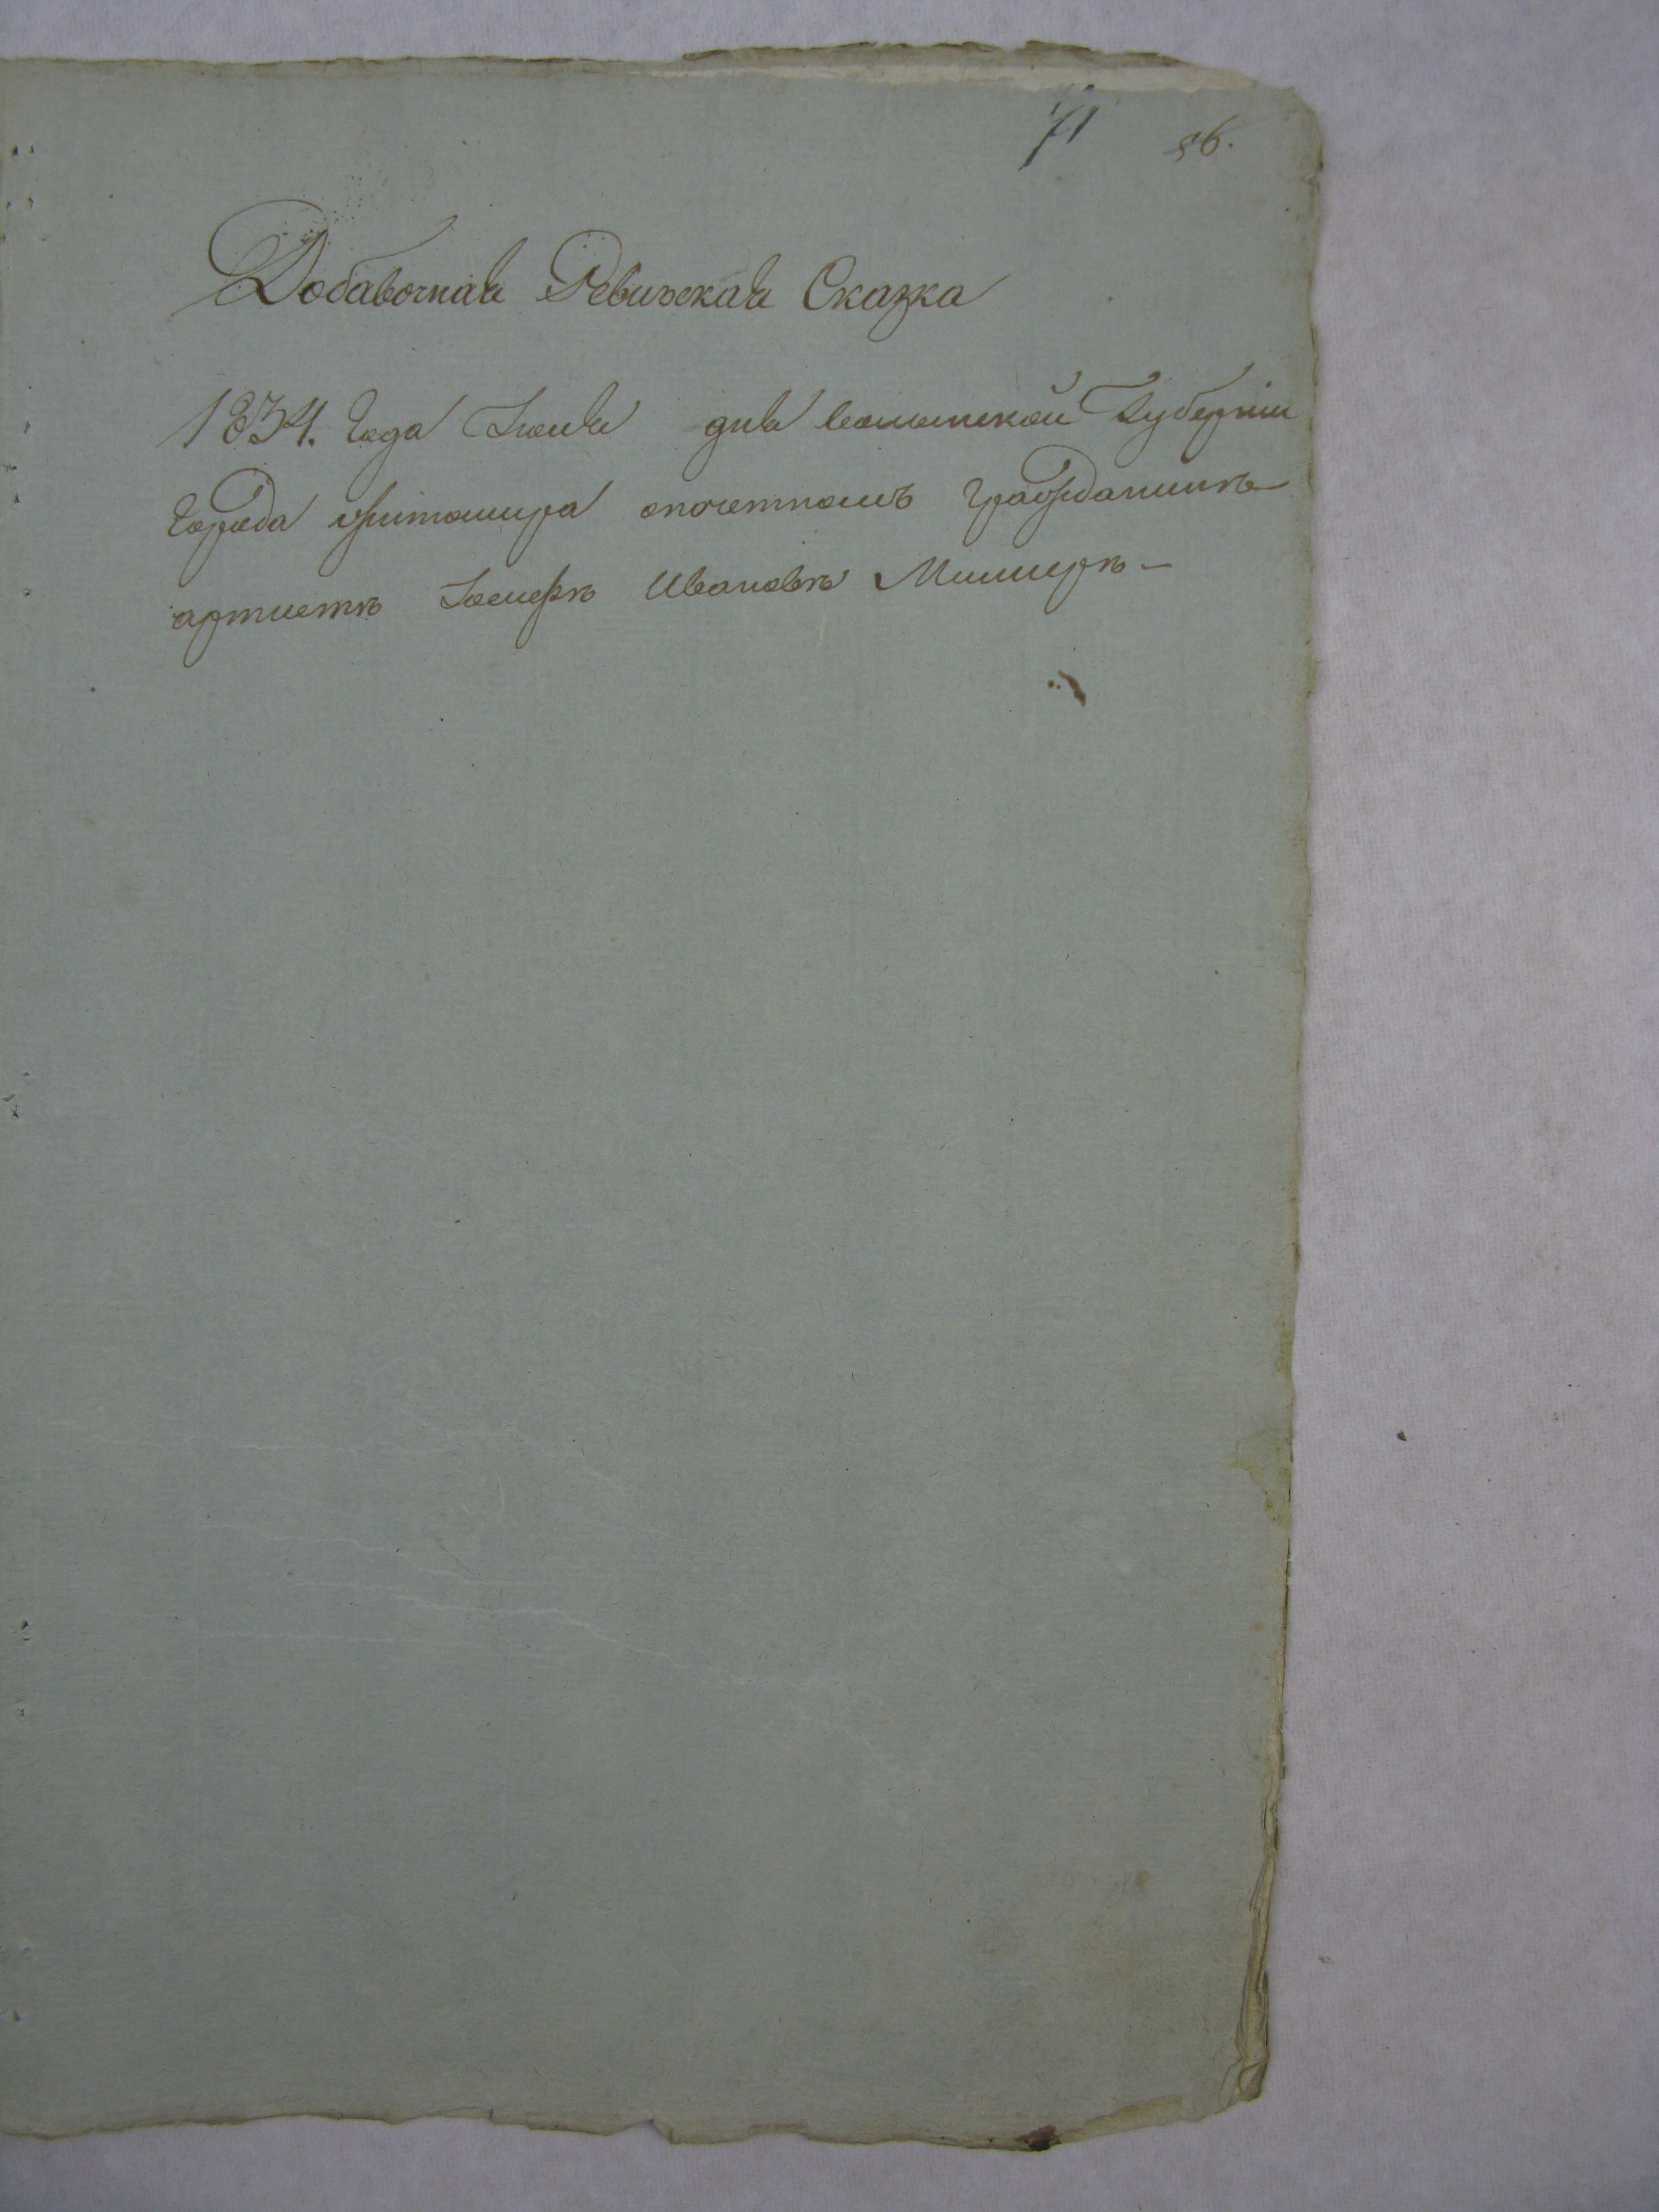 71 86.
Добавочная Ревижская Сказка
1834. Года Iюня дня волынской Губернiи
Города житомира опочетномъ Гражданинѣ
артистѣ Iосифѣ Ивановѣ Миллерѣ